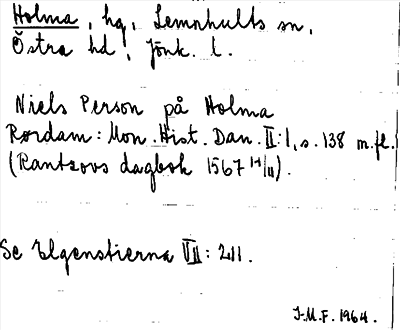 Holma, hg, Lemnhults sn,
Östra hd, Jönk. l.
Niels Person på Holma
Rørdam: Mon. Hist. Dan. II:1, s. 138 m.fl.
(Rantzovs dagbok 1567 14/11).
Se Elgenstierna VII: 211.
J.M.F. 1964.